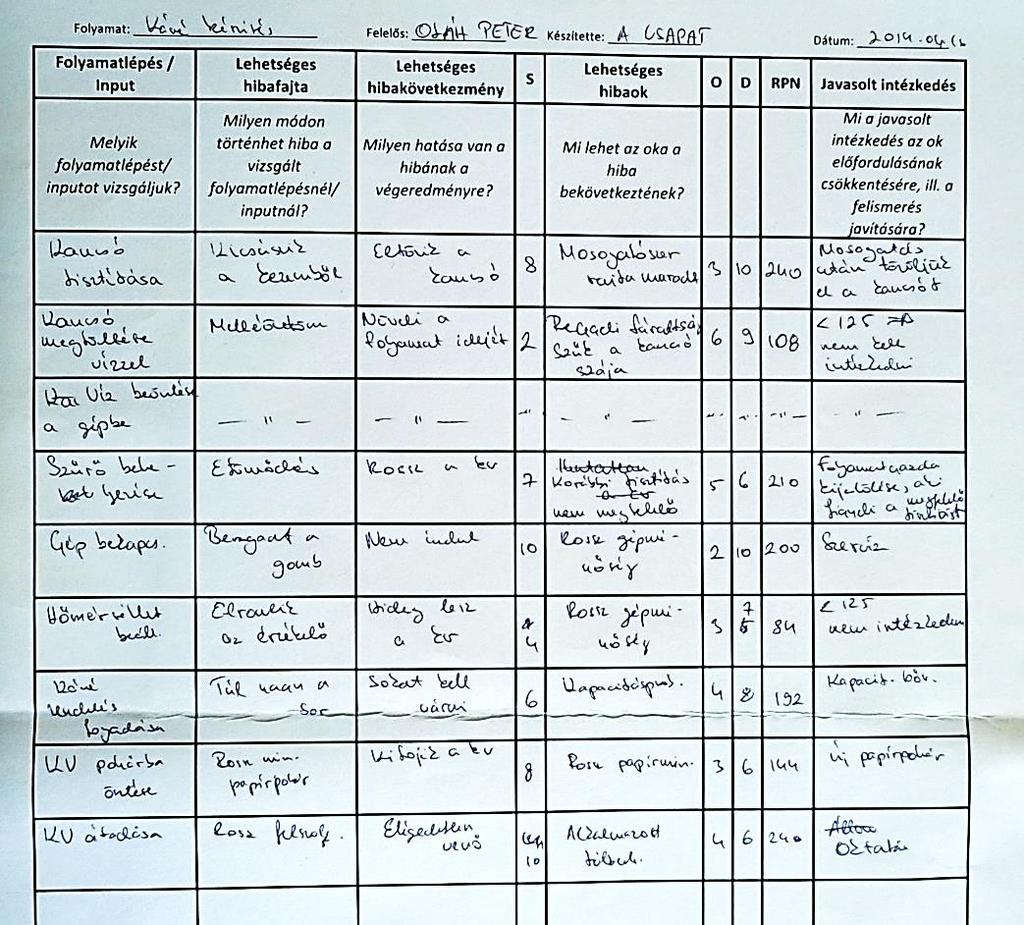 Folyamat: Kávé készítés Felelős: OLÁH PÉTER Készítette: A CSAPAT Dátum: 2014.04.
Folyamatlépés / Input
Lehetséges hibafajta
Lehetséges hibakövetkezmény
S
Lehetséges hibaok
O
D
RPN
Javasolt intézkedés
Melyik
folyamatlépést/
inputot vizsgáljuk?
Milyen módon
történhet hiba a
vizsgált
folyamatlépésnél/
inputnál?
Milyen hatása van a
hibának a
végeredményre?
Mi lehet az oka a
hiba
bekövetkeztének?
Mi a javasolt
intézkedés az ok
előfordulásának
csökkentésére, ill. a
felismerés
javítására?
Kancsó
tisztítása
Kicsúszik
a kezemből
Eltörik a
kancsó
8
Mosogatószer
rajta maradt
3
10
240
Mosogatás
után töröljük
el a kancsót
Kancsó
megtöltése
vízzel
Mellé
Növeli a
folyamat idejét
2
Reggeli fáradtság
Szűk a kancsó
szája
6
9
108
< 125 ⇒
nem kell
intézkedni
Víz beöntése
a gépbe
— " —
— " —
— " —
— " —
— " —
— " —
— " —
— " —
Szűrő behe-
lyezése
Eltömődés
Rossz a kv
7
Korábbi tisztítás
nem megfelelő
5
6
210
Folyamatgazda
kijelölése, aki
figyeli a megfelelő
tisztítást
Gép bekapcs.
Beragadt a
gomb
Nem indul
10
Rossz gépmi-
nőség
2
10
200
Szerviz
Hőmérséklet
beáll.
Elromlik
az érzékelő
Hideg lesz
a kv
4
Rossz gépmi-
nőség
3
7
84
< 125
nem intézkedem
Kávé
rendelés
fogadása
Túl nagy a
sor
Sokat kell
várni
6
Kapacitáspro.
4
8
192
Kapacit. bőv.
KV pohárba
öntése
Rossz min.
papírpohár
Kifolyik a kv
8
Rossz papírmin.
3
6
144
Új papírpohár
KV átadása
Rossz felszolg.
Elégedetlen
vevő
10
Alkalmazott
4
6
240
Oktatás